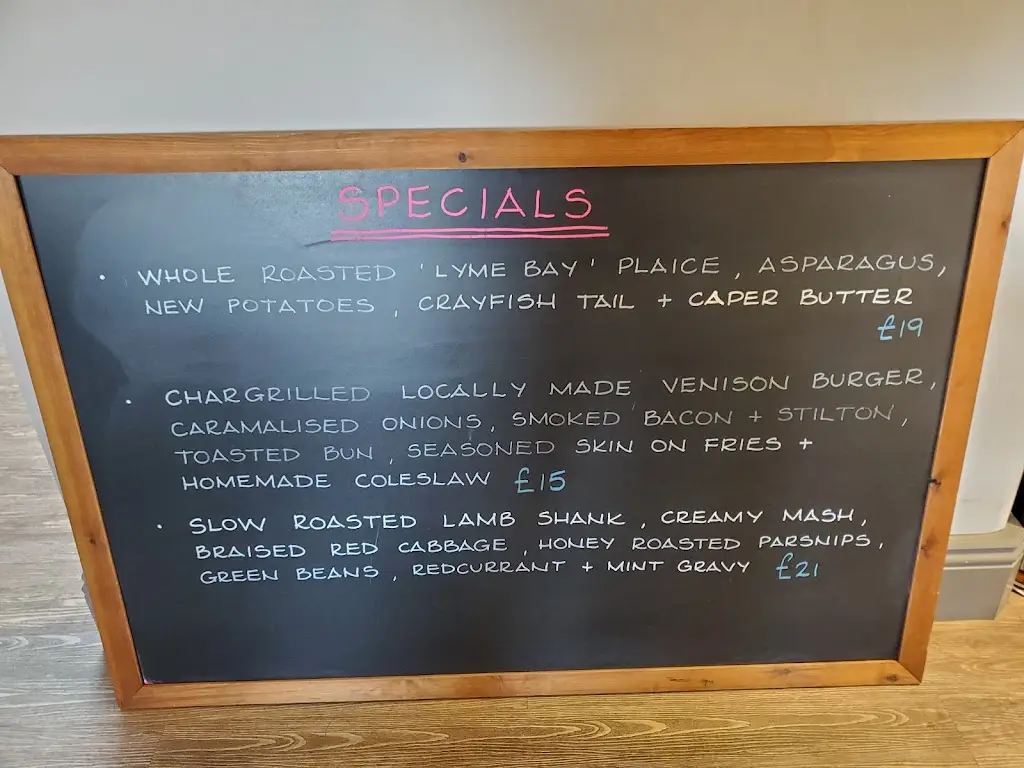 SPECIALS
• WHOLE ROASTED 'LYME BAY' PLAICE, ASPARAGUS,
NEW POTATOES, CRAYFISH TAIL + CAPER BUTTER
£19
• CHARGRILLED LOCALLY MADE VENISON BURGER,
CARAMALISED ONIONS, SMOKED BACON + STILTON,
TOASTED BUN, SEASONED SKIN ON FRIES +
HOMEMADE COLESLAW £15
• SLOW ROASTED LAMB SHANK, CREAMY MASH,
BRAISED RED CABBAGE, HONEY ROASTED PARSNIPS,
GREEN BEANS, REDCURRANT + MINT GRAVY £21